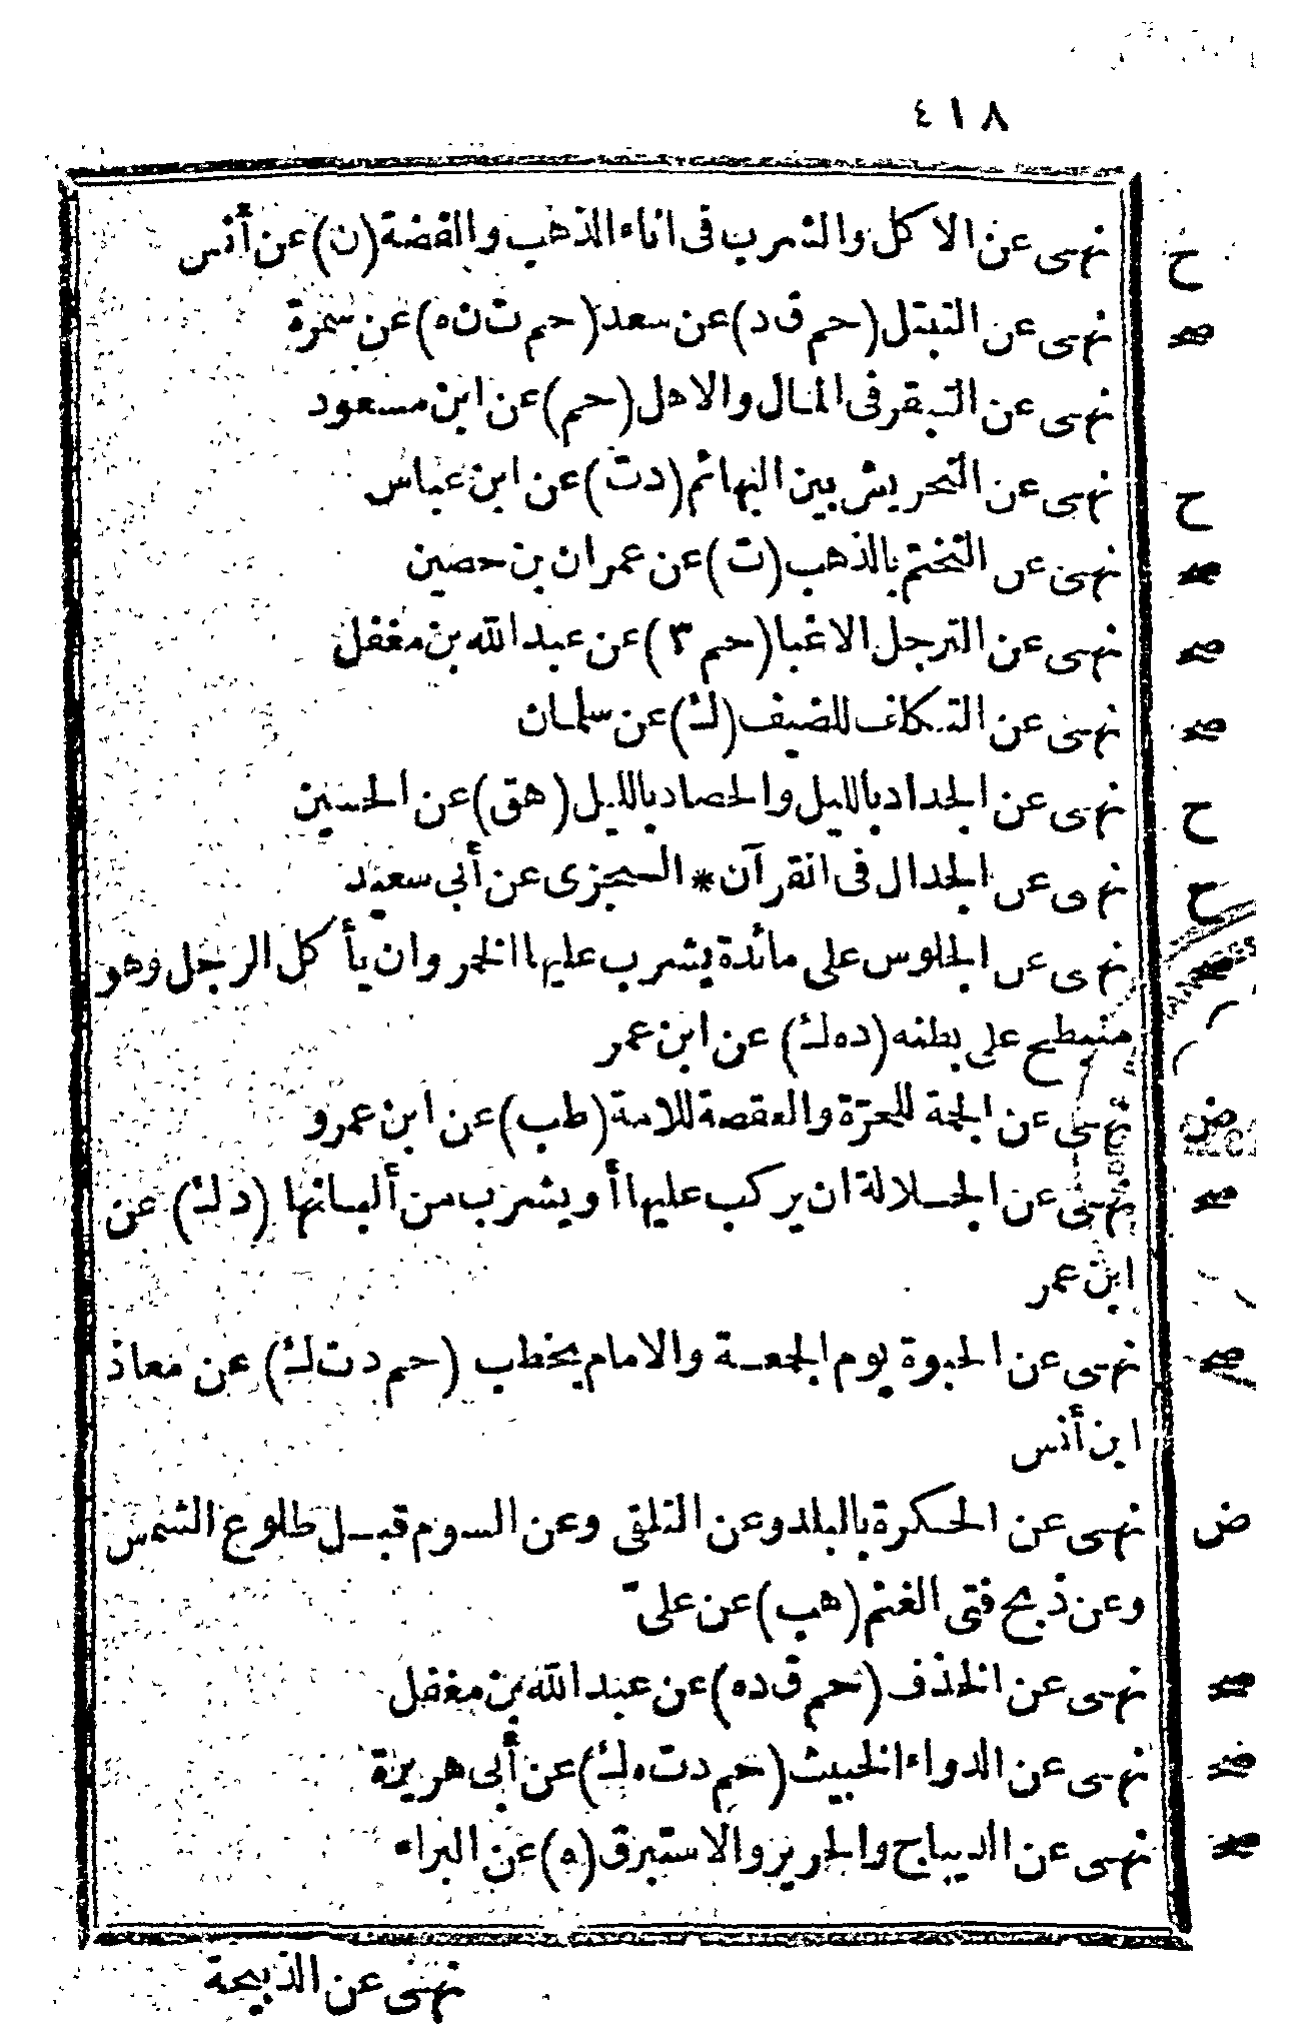 ٤١٨
ح نهى عن الاكل والشرب فى اناء الذهب والفضة (ن) عن أنس
صح نهى عن التبتل (حم ق د) عن سعد (حم ت ن ه) عن سمرة
نهى عن التبقر فى المال والاهل (حم) عن ابن مسعود
ح نهى عن التحريش بين البهائم (د ت) عن ابن عباس
صح نهى عن التختم بالذهب (ت) عن عمران بن حصين
صح نهى عن الترجل الاغبا (حم ٣) عن عبد الله بن مغفل
صح نهى عن التكلف للضيف (ك) عن سلمان
ح نهى عن الجداد بالليل والحصاد بالليل (هق) عن الحسين
ح نهى عن الجدال فى القرآن * السجزى عن أبى سعيد
صح نهى عن الجلوس على مائدة يشرب عليها الخمر وان يأكل الرجل وهو
منبطح على بطنه (د ه ك) عن ابن عمر
ض نهى عن الجمة للحرّة والعقصة للامة (طب) عن ابن عمرو
صح نهى عن الجلالة ان يركب عليها أو يشرب من ألبانها (د ك) عن
ابن عمر
صح نهى عن الحبوة يوم الجمعة والامام يخطب (حم د ت ك) عن معاذ
ابن أنس
ض نهى عن الحكرة بالبلد وعن التلقى وعن السوم قبل طلوع الشمس
وعن ذبح فتى الغنم (هب) عن علىّ
صح نهى عن الخذف (حم ق د ه) عن عبد الله بن مغفل
صح نهى عن الدواء الخبيث (حم د ت ه ك) عن أبى هريرة
صح نهى عن الديباج والحرير والاستبرق (ه) عن البراء
نهى عن الذبيحة